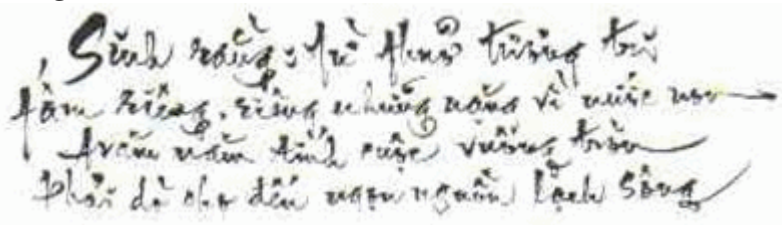 Sinh rằng: từ thuở tương tri
tấm riêng, riêng những nặng vì nước non
trăm năm tính cuộc vuông tròn
Phải dò cho đến ngọn nguồn lạch sông